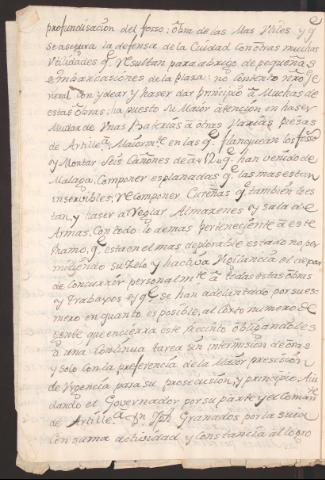 profundisacion del fosso: obra de las Mas Utiles y q.
se asegura la defensa de la Ciudad con otras muchas
Utilidades q. resultan para abrigo de pequeñas
embarcaciones de la plaza: no contento nro Ge
neral con ydear y haser dar principio a Muchas de
estas Obras; ha puesto su Maior atencion en haser
Mudar de Unas Baterias a otras Varias piesas
de Artill.a Maiorm.te en las q. flanquean los fosso
y Montar Seis Cañones de a 24 q. han venido de
Malaga, Componer esplanadas q. las mas estan
inservibles, recomponer Cureñas q. tambien lo es
tan, y haser arreglar Almazenes y sala de
Armas. Con todo lo demas perteneciente a este
Ramo, q. esta en el mas deplorable estado no per
mitiendo su Zelo y hactiva Vigilancia el dejar
de concurrir personalm.te a todas estas Obras
y trabajos y q. se han adelantado, por su es
mero en quanto es posible, al corto numero de
gente que encierra este recinto obligandoles
a una continua tarea sin intermision de oras
y solo con la preferencia de la Maior precision
de Urgencia para su prosecusion, y principio Aiu
dando el Governador por su parte y el Coman.
de Artill.a Dn. Jph Granados por la suia
con suma actividad y constancia al logro